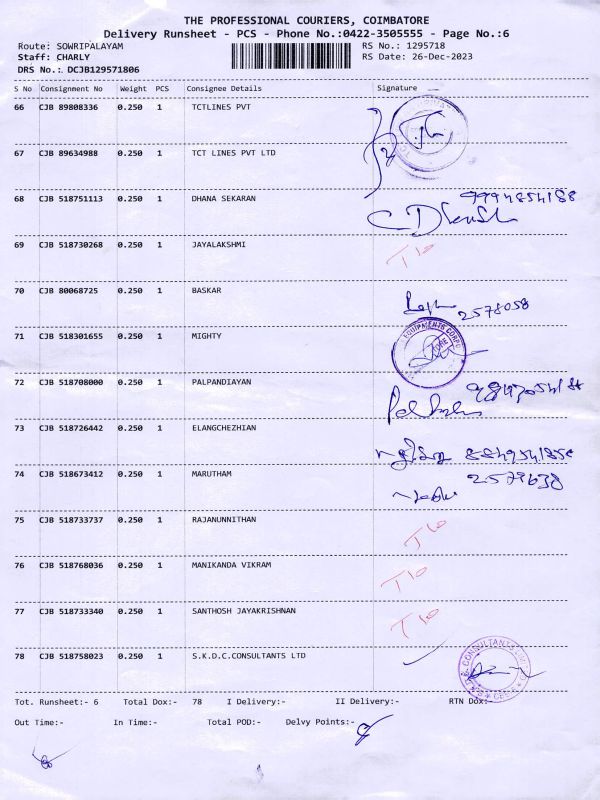 THE PROFESSIONAL COURIERS, COIMBATORE
Delivery Runsheet - PCS - Phone No.:0422-3505555 - Page No.:6
Route: SOWRIPALAYAM RS No.: 1295718
Staff: CHARLY RS Date: 26-Dec-2023
DRS No.: DCJB129571806
S No Consignment No Weight PCS Consignee Details Signature
66 CJB 89808336 0.250 1 TCTLINES PVT
67 CJB 89634988 0.250 1 TCT LINES PVT LTD
68 CJB 518751113 0.250 1 DHANA SEKARAN
69 CJB 518730268 0.250 1 JAYALAKSHMI
70 CJB 80068725 0.250 1 BASKAR 2578058
71 CJB 518301655 0.250 1 MIGHTY
72 CJB 518708000 0.250 1 PALPANDIAYAN
73 CJB 518726442 0.250 1 ELANGCHEZHIAN
74 CJB 518673412 0.250 1 MARUTHAM
75 CJB 518733737 0.250 1 RAJANUNNITHAN
76 CJB 518768036 0.250 1 MANIKANDA VIKRAM
77 CJB 518733340 0.250 1 SANTHOSH JAYAKRISHNAN
78 CJB 518758023 0.250 1 S.K.D.C.CONSULTANTS LTD
Tot. Runsheet:- 6 Total Dox:- 78 I Delivery:- II Delivery:- RTN Dox:-
Out Time:- In Time:- Total POD:- Delvy Points:-